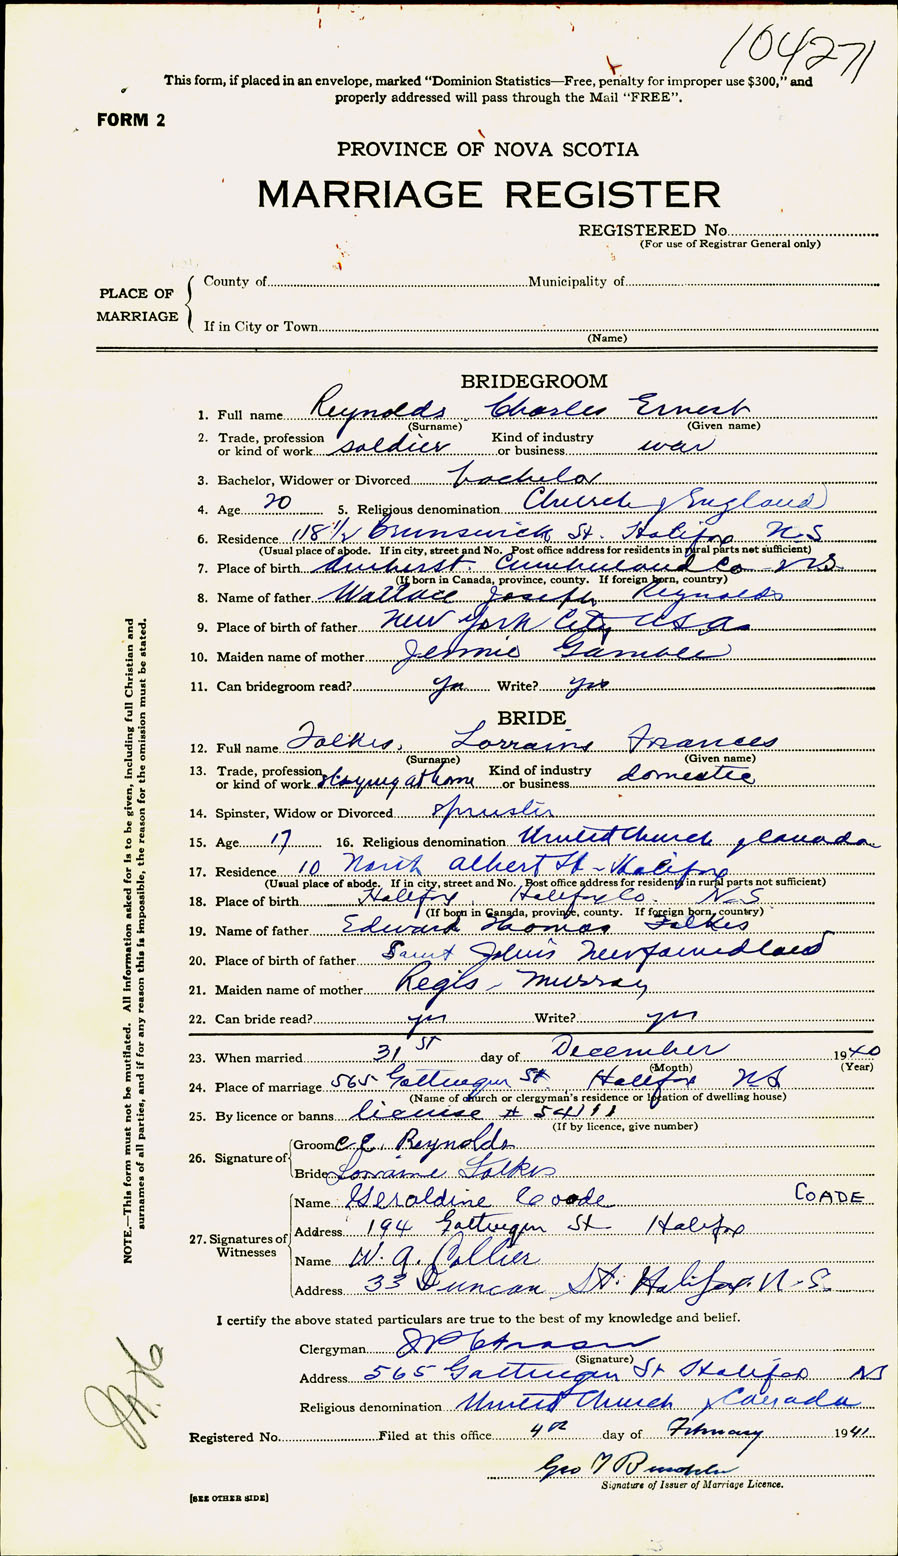 104271
This form, if placed in an envelope, marked "Dominion Statistics—Free, penalty for improper use $300," and
properly addressed will pass through the Mail "FREE".
FORM 2
PROVINCE OF NOVA SCOTIA
MARRIAGE REGISTER
REGISTERED No
(For use of Registrar General only)
PLACE OF MARRIAGE
County of Municipality of
If in City or Town
(Name)
NOTE.—This form must not be mutilated. All information asked for is to be given, including full Christian and
surnames of all parties, and if for any reason this is impossible, the reason for the omission must be stated.
BRIDEGROOM
1. Full name Reynolds Charles Ernest
(Surname) (Given name)
2. Trade, profession or kind of work soldier Kind of industry or business war
3. Bachelor, Widower or Divorced bachelor
4. Age 20 5. Religious denomination Church of England
6. Residence 118 1/2 Brunswick St. Halifax N.S
(Usual place of abode. If in city, street and No. Post office address for residents in rural parts not sufficient)
7. Place of birth Amherst. Cumberland Co NS
(If born in Canada, province, county. If foreign born, country)
8. Name of father Wallace Joseph Reynolds
9. Place of birth of father New York City USA
10. Maiden name of mother Jennie Gamble
11. Can bridegroom read? yes Write? yes
BRIDE
12. Full name Folkes, Lorraine Frances
(Surname) (Given name)
13. Trade, profession or kind of work staying at home Kind of industry or business domestic
14. Spinster, Widow or Divorced spinster
15. Age 17 16. Religious denomination United Church of Canada
17. Residence 10 North Albert St - Halifax
(Usual place of abode. If in city, street and No. Post office address for residents in rural parts not sufficient)
18. Place of birth Halifax, Halifax Co. N.S
(If born in Canada, province, county. If foreign born, country)
19. Name of father Edward Thomas Folkes
20. Place of birth of father Saint John's Newfoundland
21. Maiden name of mother Regis Murray
22. Can bride read? yes Write? yes
23. When married 31st day of December 1940
(Month) (Year)
24. Place of marriage 565 Gottingen St, Halifax NS
(Name of church or clergyman's residence or location of dwelling house)
25. By licence or banns license # 54111
(If by licence, give number)
26. Signature of
Groom C. E. Reynolds
Bride Lorraine Folkes
27. Signatures of Witnesses
Name Geraldine Coade COADE
Address 194 Gottingen St Halifax
Name W. A. Collier
Address 33 Duncan St. Halifax. N.S.
I certify the above stated particulars are true to the best of my knowledge and belief.
Clergyman
(Signature)
Address 565 Gottingen St Halifax NS
Religious denomination United Church of Canada
Registered No. Filed at this office 4th day of February 1941
Geo
Signature of Issuer of Marriage Licence.
[SEE OTHER SIDE]